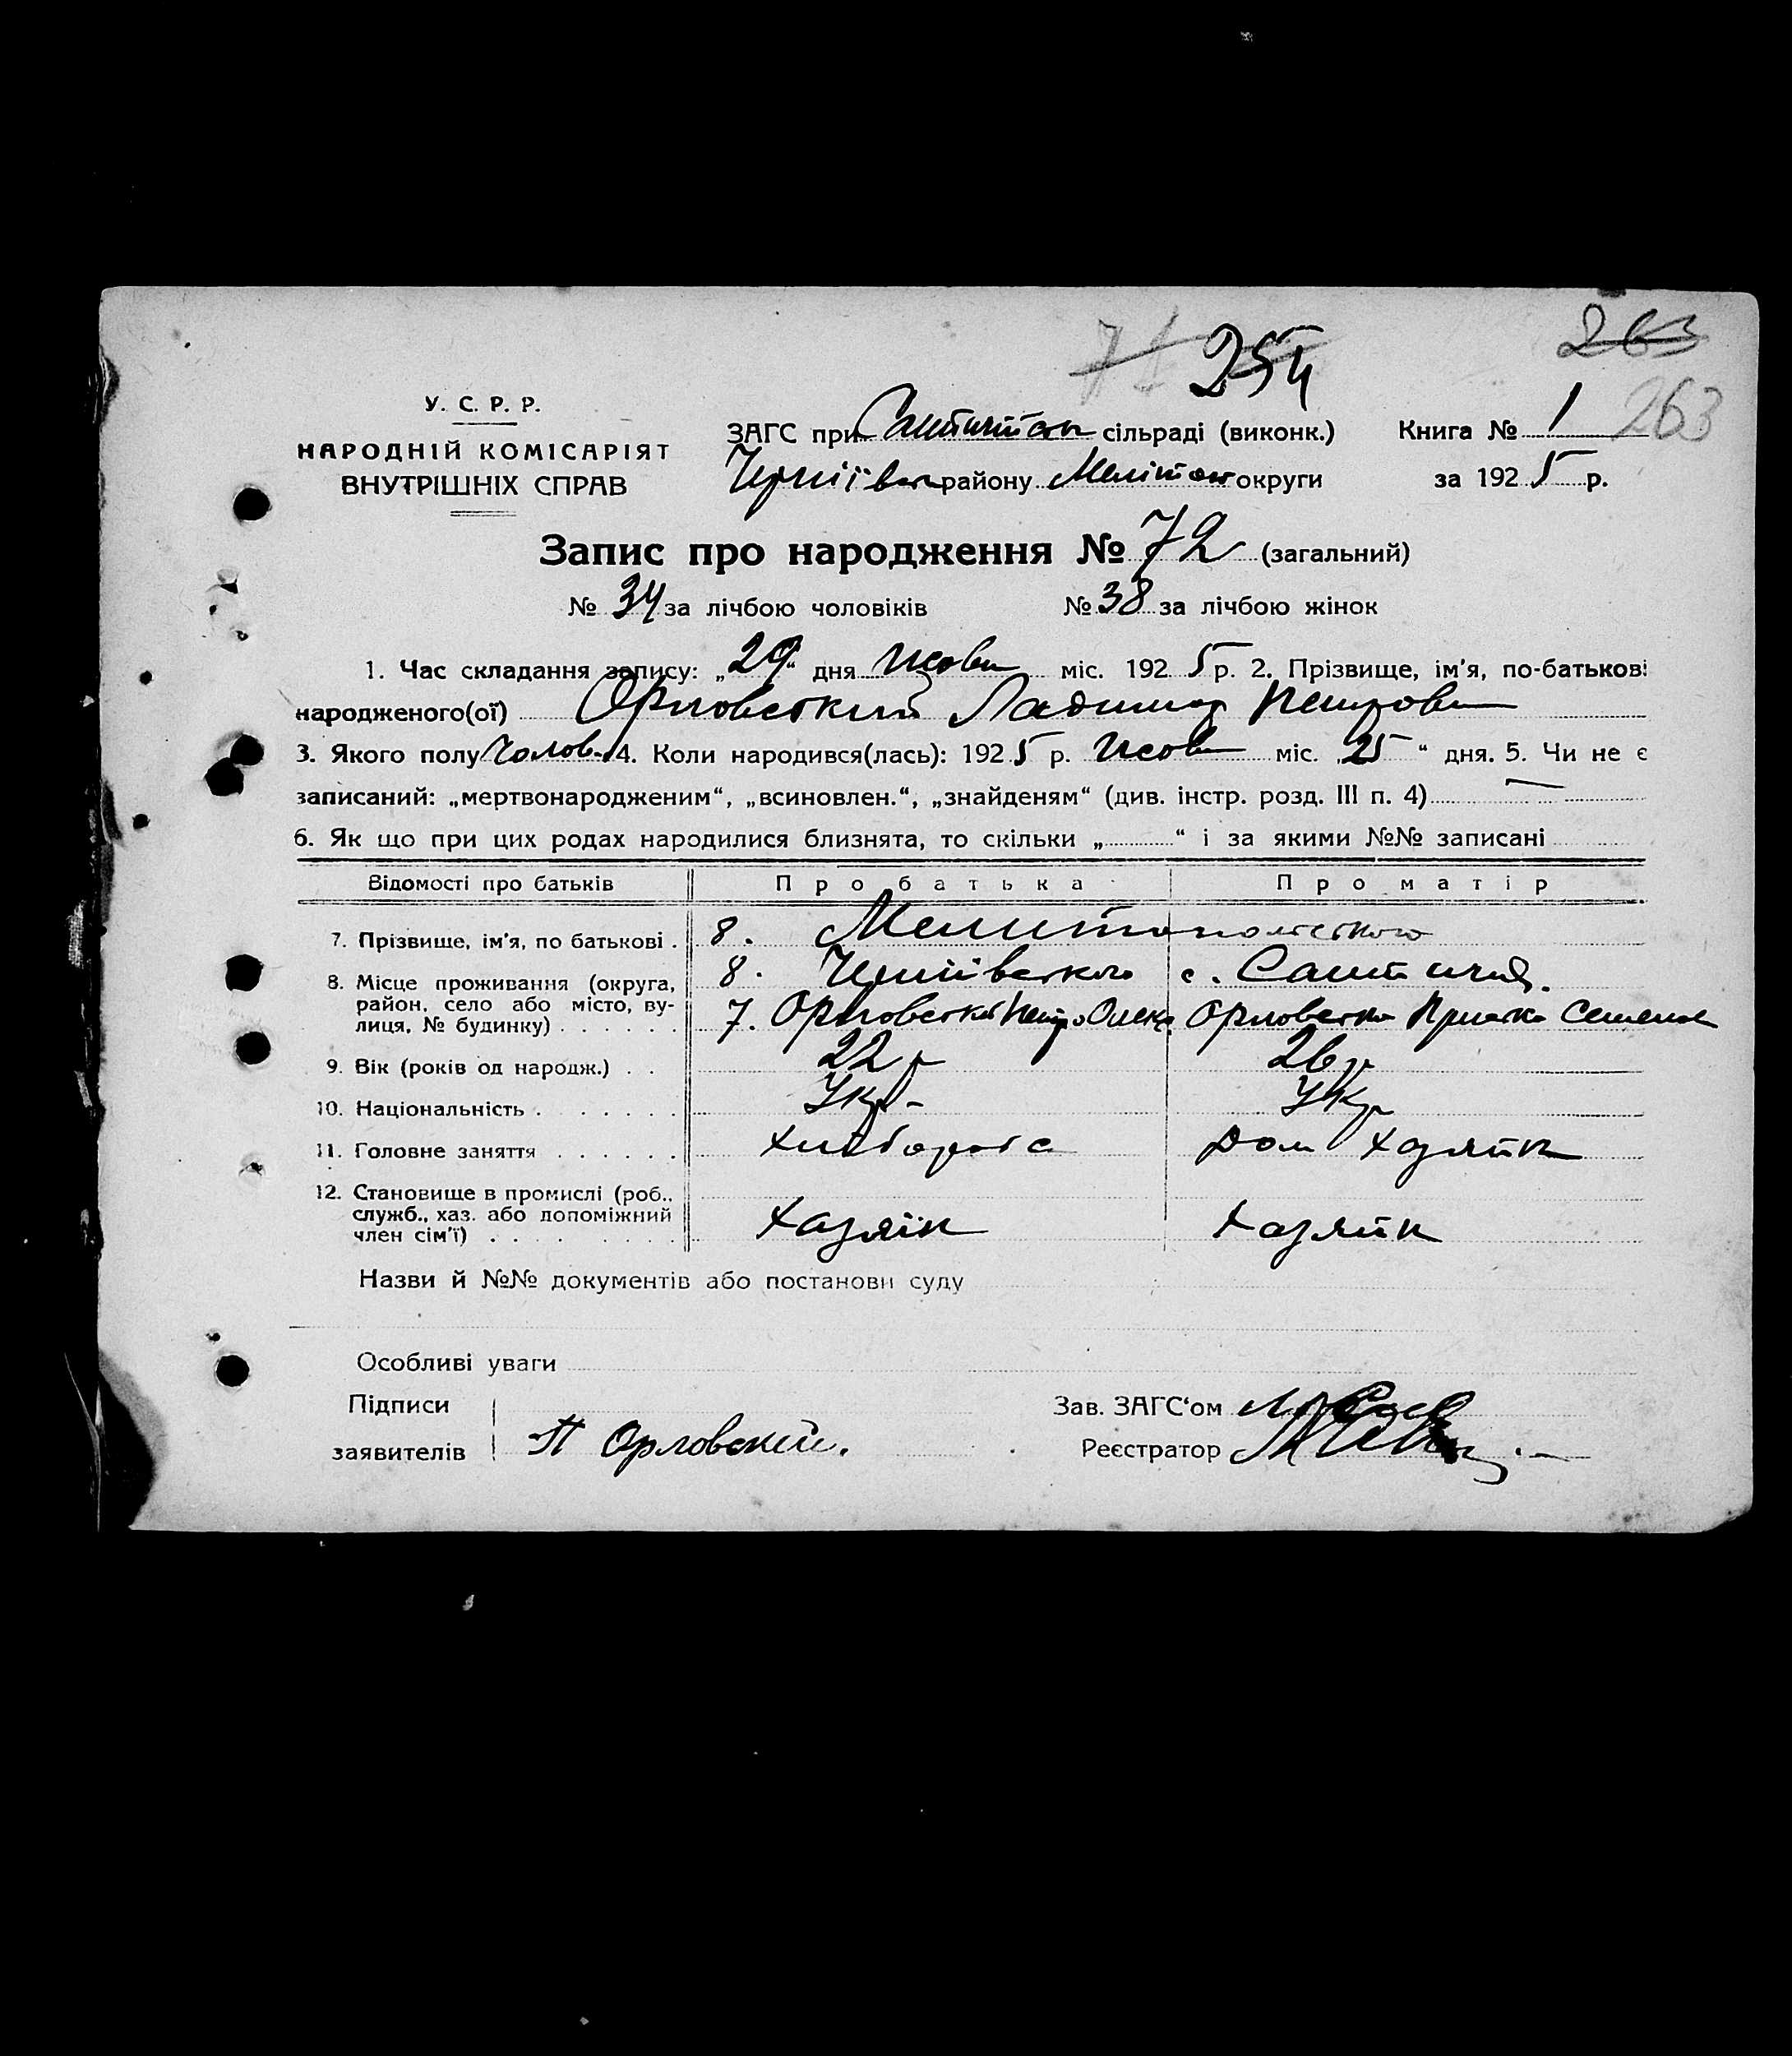 263
71 254
У. С. Р. Р.
ЗАГС при сільраді (виконк.) Книга № 1 263
НАРОДНІЙ КОМІСАРІЯТ
ВНУТРІШНІХ СПРАВ
району Меліт округи за 1925 р.
Запис про народження № 72 (загальний)
№ 34 за лічбою чоловіків № 38 за лічбою жінок
1. Час складання запису: „29“ дня Жовтн міс. 1925 р. 2. Прізвище, ім'я, по-батькові
народженого(ої) Орловський Ладимир Петрович
3. Якого полу Чолов. 4. Коли народився(лась): 1925 р. Жовт міс. „25“ дня. 5. Чи не є
записаний: „мертвонародженим“, „всиновлен.“, „знайденям“ (див. інстр. розд. III п. 4) —
6. Як що при цих родах народилися близнята, то скільки „ “ і за якими №№ записані
Відомості про батьків Про батька Про матір
7. Прізвище, ім'я, по батькові . 8. Мелитопольського
8. Місце проживання (округа, район, село або місто, вулиця, № будинку) . . . . . . 8. Чернiївського с.
7. Орловський Петро Олекс. Орловська Семенов
9. Вік (років од народж.) . . 22 р 26 р
10. Національність . . . . . . . Укр- Укр
11. Головне заняття . . . . . . хліборобс Дом хазяйк
12. Становище в промислі (роб., служб., хаз. або допоміжний член сім'ї) . . . . . . . . хазяїн хазяйк
Назви й №№ документів або постанови суду
Особливі уваги
Підписи
заявителів П Орловский.
Зав. ЗАГС'ом
Реєстратор